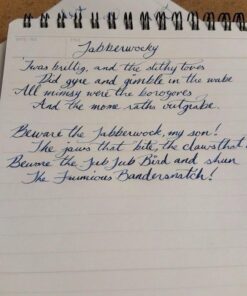 Jabberwocky
'Twas brillig, and the slithy toves
Did gyre and gimble in the wabe
All mimsy were the borogoves
And the mome raths outgrabe.
Beware the Jabberwock, my son!
The jaws that bite, the claws that
Beware the Jub Jub Bird and shun
The Frumious Bandersnatch!